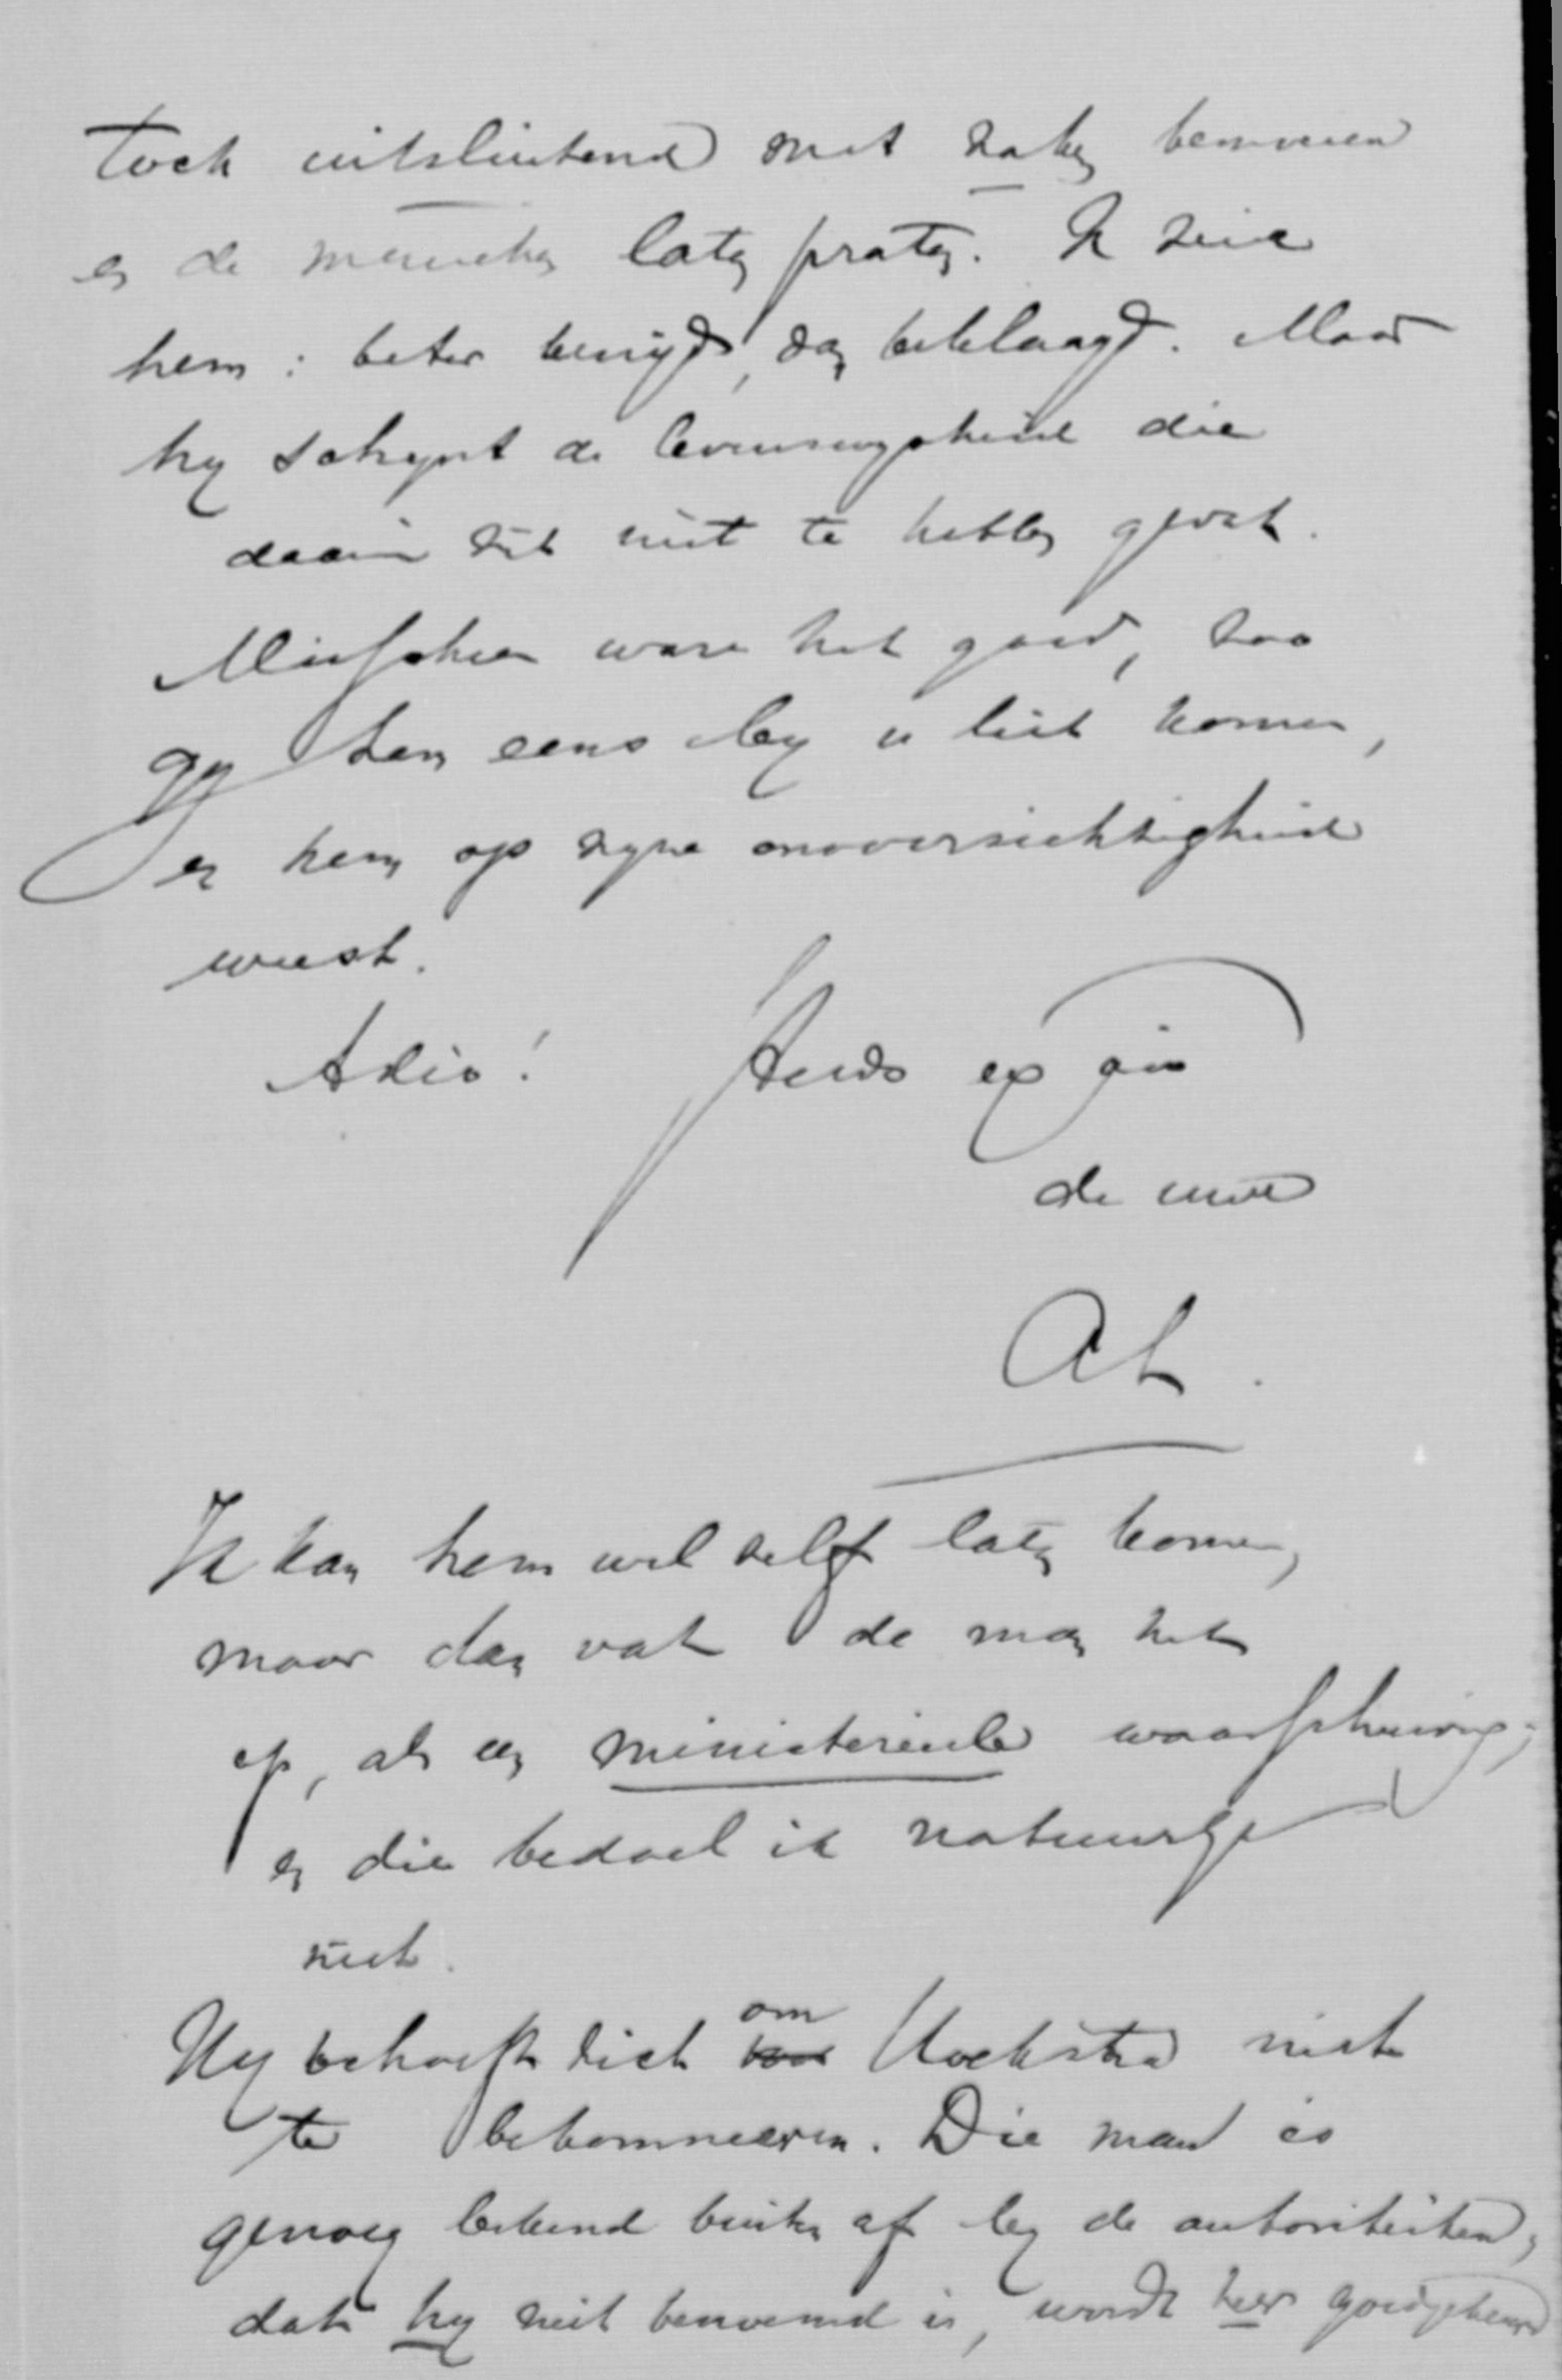 toch uitsluitend met zaken bemoeien
en de menschen laten praten. Ik zeide
hem: beter benijd, dan beklaagd. Maar
hy schynt de levenswysheid die
daarin zit niet te hebben gevat.
Misschien ware het goed, zoo
gy hem eens by u liet komen,
en hem op zyne onvoorzichtigheid
weest.
Adio! Steeds ex
de uwe
Ik kan hem wel zelf laten komen,
maar dan vat de man het
op, als een ministerieele waarschuwing;
en die bedoel ik natuurlyk
niet.
Hy behoeft zich om Hoekstra niet
te bekommeren. Die man is
genoeg bekend buiten af by de autoriteiten;
dat hy niet benoemd is, wordt hier goedgekeurd